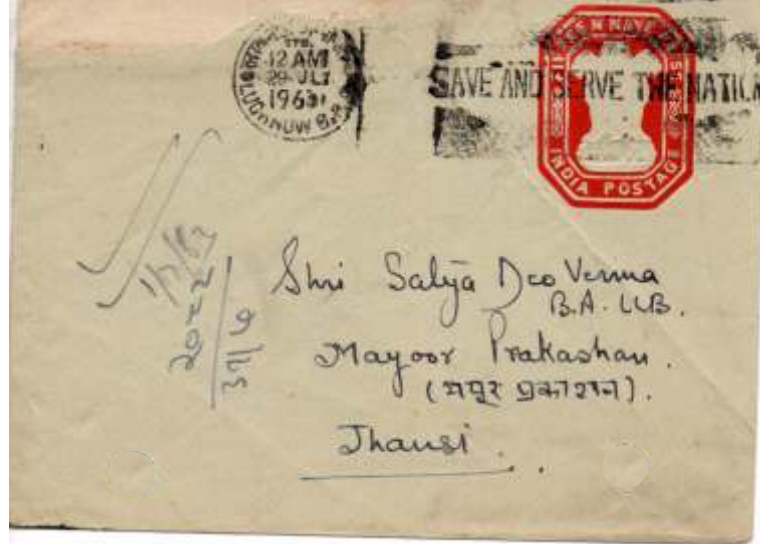 12 AM
29 JLY
1963
LUCKNOW
SAVE AND SERVE THE NATION
INDIA POSTAGE
Shri Satya Deo Verma
B.A. LLB.
Mayoor Prakashan.
(मयूर प्रकाशन).
Jhansi.